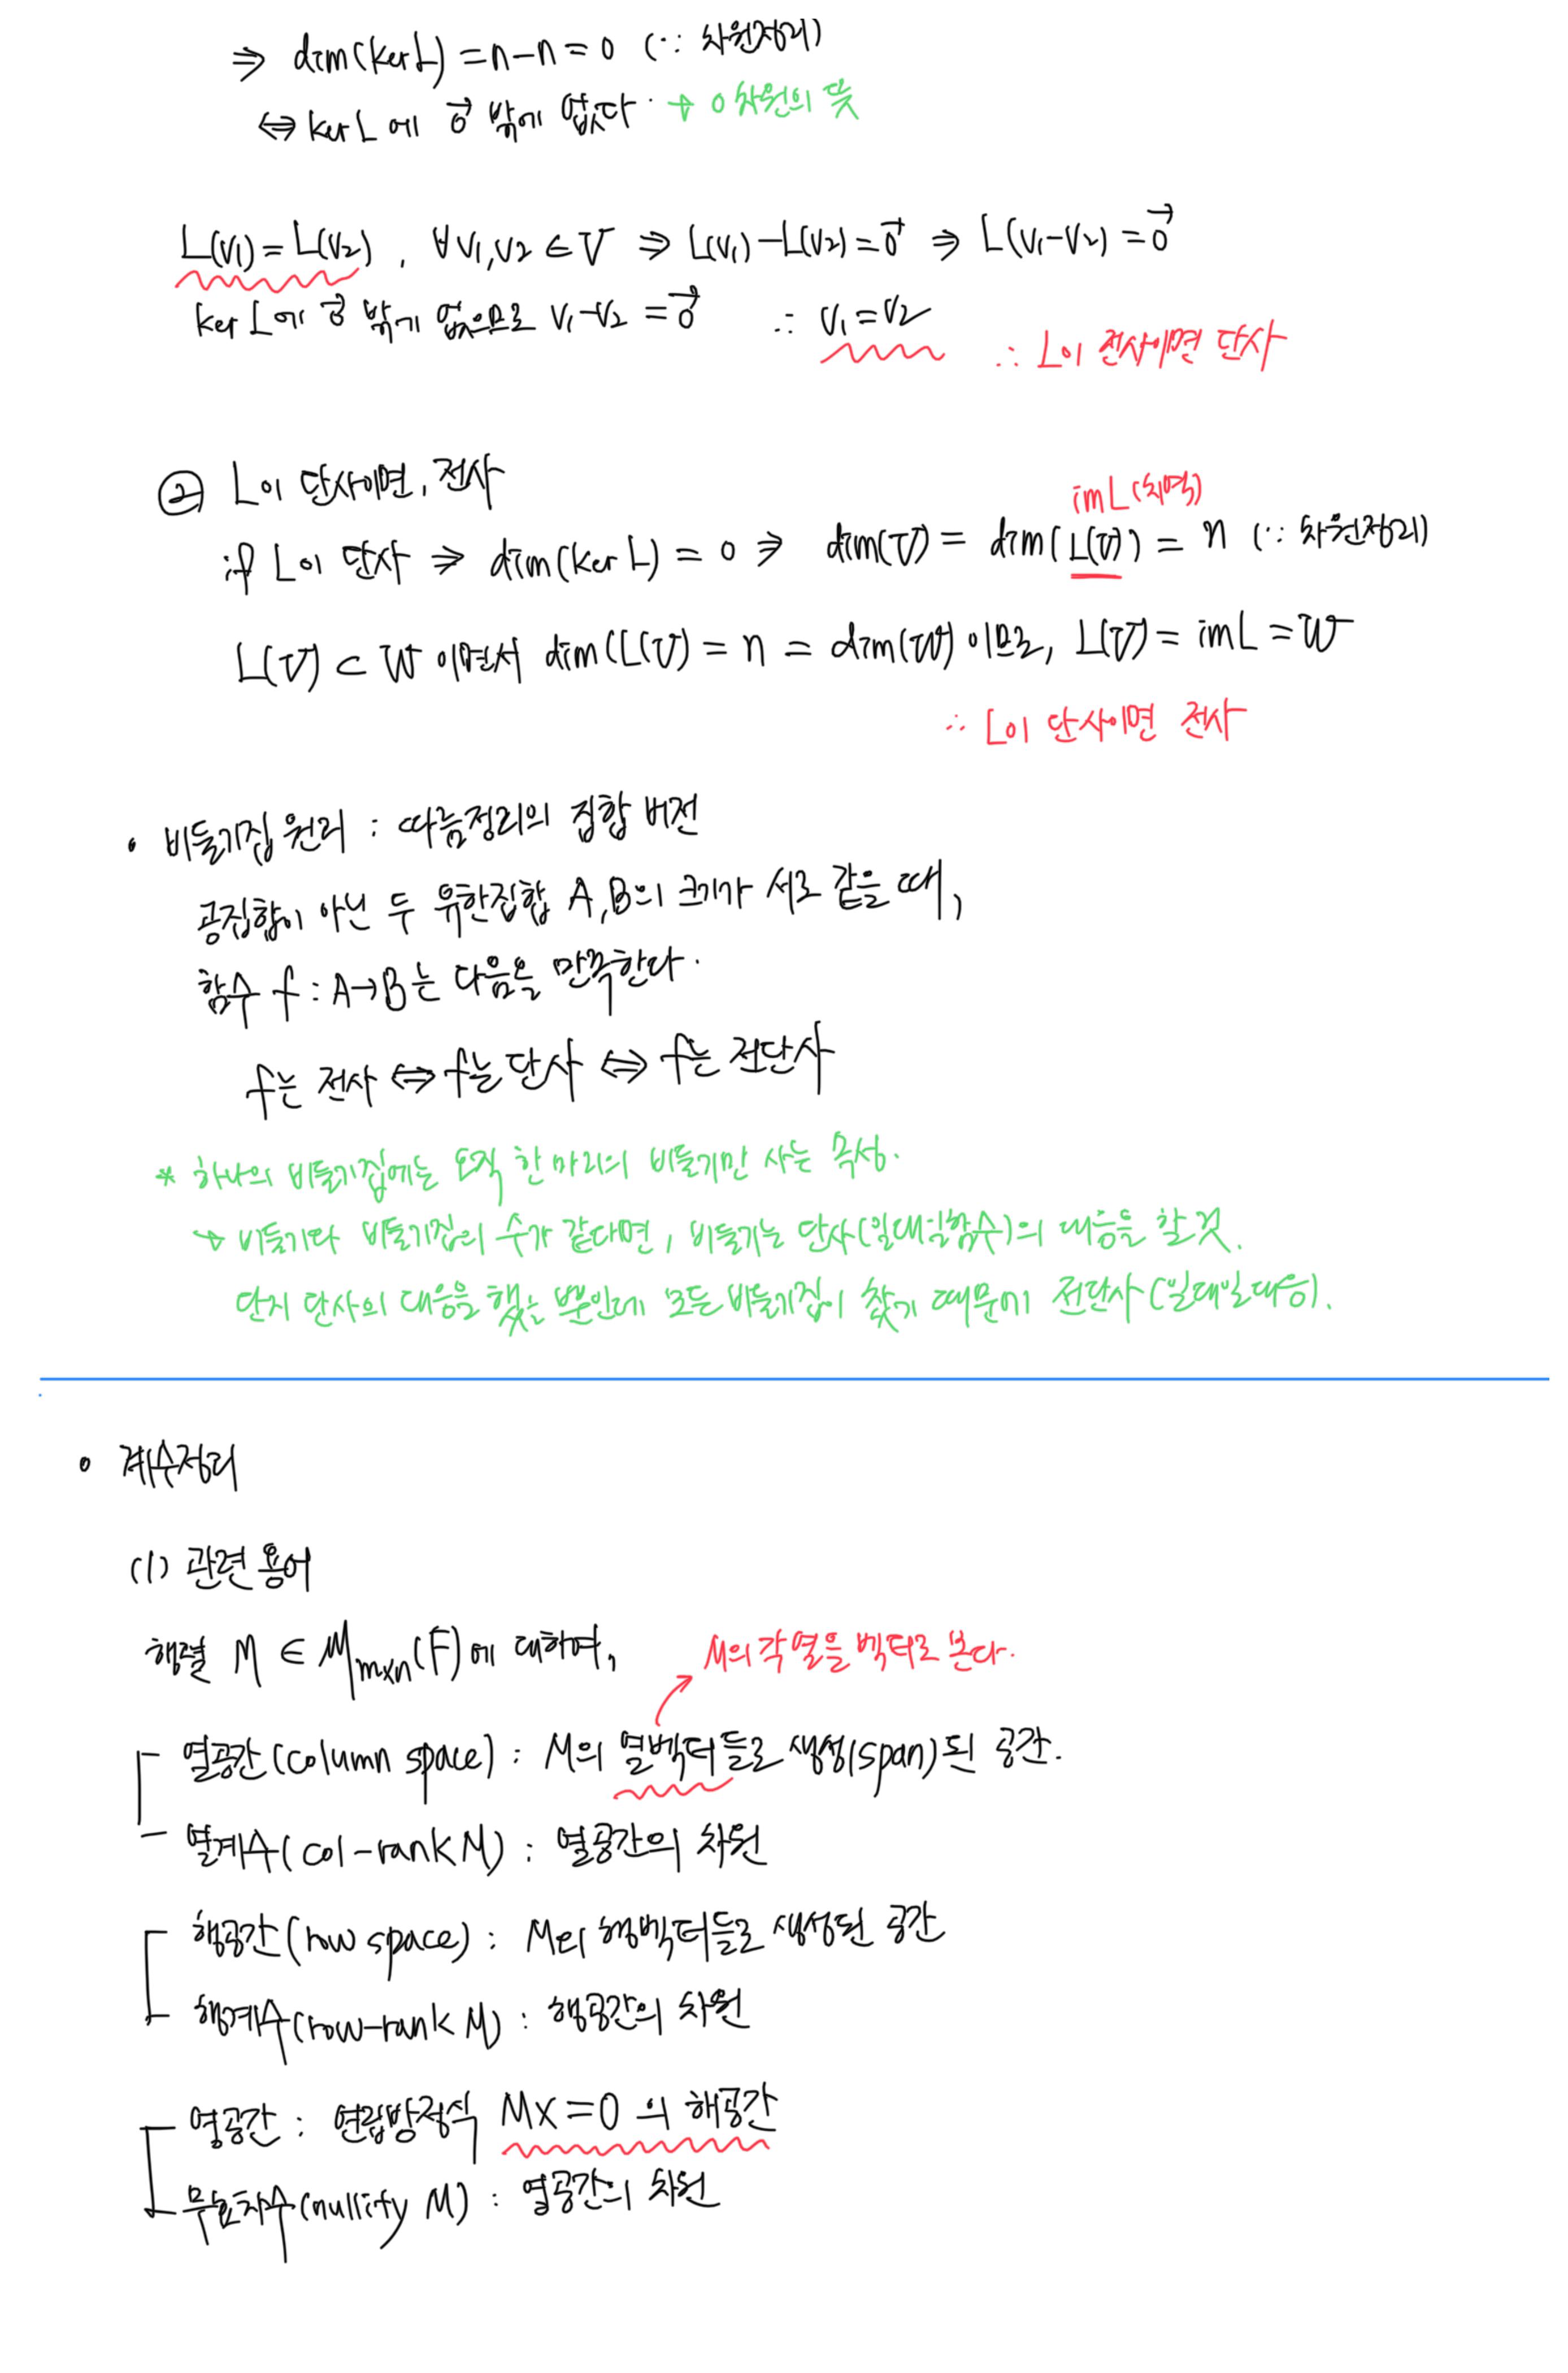 ⇒ dim(ker L) = n-n = 0 (∵ 차원정리)
⇔ ker L에 0⃗ 밖에 없다. → 0차원의 뜻
L(v₁) = L(v₂), ∀v₁,v₂ ∈ V ⇒ L(v₁)-L(v₂)=0⃗ ⇒ L(v₁-v₂)=0⃗
ker L에 0⃗ 밖에 없으므로 v₁-v₂ = 0⃗ ∴ v₁=v₂ ∴ L이 전사이면 단사
② L이 단사이면, 전사
imL(치역)
if L이 단사 ⇒ dim(ker L) = 0 ⇒ dim(V) = dim(L(V)) = n (∵ 차원정리)
L(V) ⊂ W 이면서 dim(L(V) = n = dim(W) 이므로, L(V) = imL = W
∴ L이 단사이면 전사
• 비둘기집 원리 : 따름정리의 집합 버전
공집합이 아닌 두 유한집합 A,B의 크기가 서로 같을 때,
함수 f : A→B는 다음을 만족한다.
f는 전사 ⇔ f는 단사 ⇔ f는 전단사
* 하나의 비둘기집에는 오직 한마리의 비둘기만 사는 속성.
→ 비둘기와 비둘기집의 수가 같다면, 비둘기는 단사(일대일함수)의 대응을 할 것.
단지 단사의 대응을 했는 뿐인데 모든 비둘기집이 찼기 때문에 전단사(일대일대응).
• 계수정리
(1) 관련 용어
행렬 M ∈ Mₘₓₙ(F)에 대하여,
M의 각 열을 벡터로 본다.
열공간(column space) : M의 열벡터들로 생성(span)된 공간.
열계수(col-rank M) : 열공간의 차원
행공간(row space) : M의 행벡터들로 생성된 공간
행계수(row-rank M) : 행공간의 차원
영공간 : 연립방정식 MX=0 의 해공간
무효차수(nullity M) : 영공간의 차원